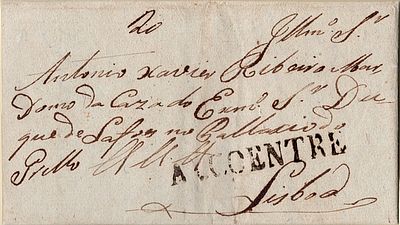 20 Illmo. Sr.
Antonio Xavier Ribeiro Mor
Domo da Caza do Exmo. Sr. Du
que de Lafoes no Pallacio do
Grillo
ALCOENTRE
Lisboa